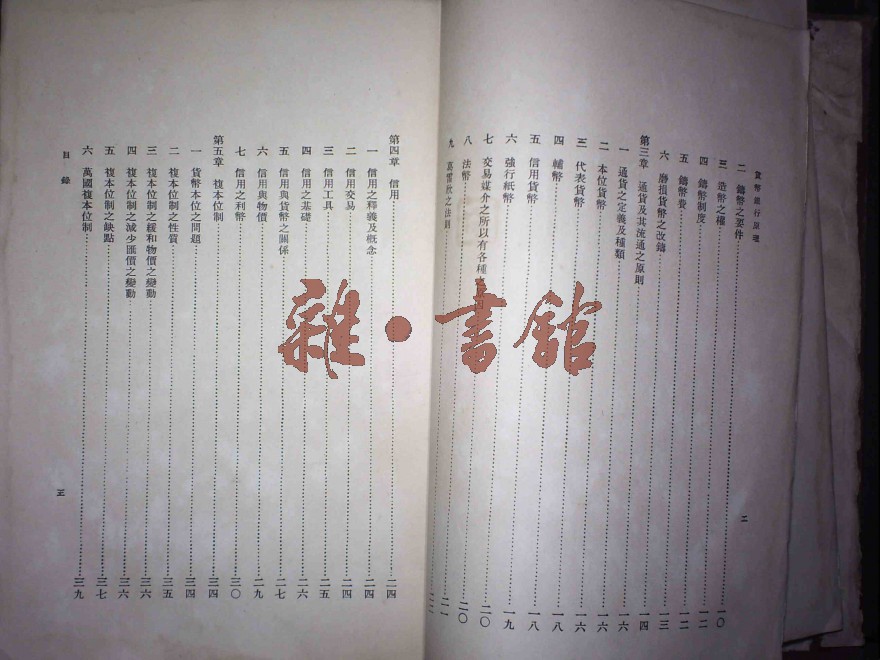 貨幣銀行原理
二
二 鑄幣之要件……一〇
三 造幣之權……一一
四 鑄幣制度……一二
五 鑄幣費……一二
六 磨損貨幣之改鑄……一三
第三章 通貨及其流通之原則……一四
一 通貨之定義及種類……一六
二 本位貨幣……一六
三 代表貨幣……一六
四 輔幣……一八
五 信用貨幣……一八
六 強行紙幣……一九
七 交易媒介之所以有各種……二〇
八 法幣……二〇
九 之法則……二一
第四章 信用……二四
一 信用之釋義及概念……二四
二 信用交易……二四
三 信用工具……二五
四 信用之基礎……二六
五 信用與貨幣之關係……二七
六 信用與物價……二九
七 信用之利幣……三〇
第五章 複本位制……三四
一 貨幣本位之問題……三四
二 複本位制之性質……三五
三 複本位制之緩和物價之變動……三六
四 複本位制之減少匯價之變動……三六
五 複本位制之缺點……三七
六 萬國複本位制……三九
目錄
三
雜·書館